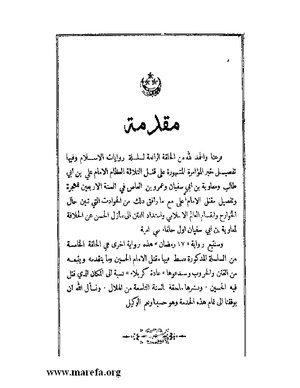 مقدمة
فرغنا والحمد لله من الحلقة الرابعة لسلسلة روايات الاسلام وفيها
تفصيل خبر المؤامرة المشهورة على قتل الثلاثة العظام الامام علي بن ابي
طالب ومعاوية بن ابي سفيان وعمرو بن العاص في السنة الاربعين للهجرة
وتفصيل مقتل الامام علي مع ما رافق ذلك من الحوادث التي تبين حال
الخوارج وانقسام العالم الاسلامي واستبداد الفتن الى تنازل الحسن عن الخلافة
لمعاوية بن ابي سفيان اول خلفاء بني امية
وستتبع رواية « ١٧ رمضان » هذه رواية اخرى هي الحلقة الخامسة
من السلسلة المذكورة نبسط فيها مقتل الامام الحسين وما يتقدمه ويتبعه
من الفتن والحروب وسندعوها « غادة كربلاء » نسبة الى المكان الذي قتل
فيه الحسين وسننشرها ملحقة السنة التاسعة من الهلال . ونسأل الله ان
يوفقنا الى تمام هذه الخدمة وهو حسبنا ونعم الوكيل
www.marefa.org